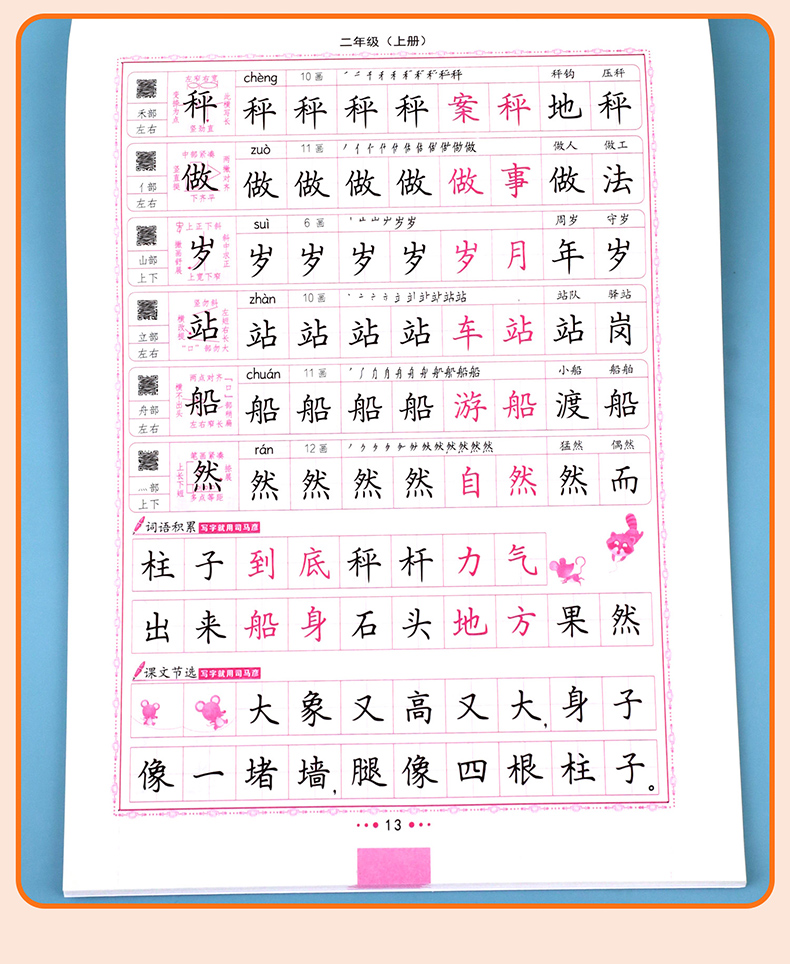 二年级（上册）
chèng 10画 秤钩 压秤
禾部 左右
左窄右宽 变捺为点 此横写长 竖劲直
秤 秤 秤 秤 秤 案 秤 地 秤
zuò 11画 做人 做工
亻部 左右
中部紧凑 竖直挺 两撇对齐 下齐平
做 做 做 做 做 做 事 做 法
suì 6画 周岁 守岁
山部 上下
上正下斜 撇画舒展 斜中求正 上宽下窄
岁 岁 岁 岁 岁 岁 月 年 岁
zhàn 10画 站队 驿站
立部 左右
竖勿斜 横改提 左短右长 “口”部勿大
站 站 站 站 站 车 站 站 岗
chuán 11画 小船 船舶
舟部 左右
两点对齐 横不出头 “口”部稍扁 左右窄长
船 船 船 船 船 游 船 渡 船
rán 12画 猛然 偶然
灬部 上下
笔画紧凑 上长下短 捺展 多点等距
然 然 然 然 然 自 然 然 而
词语积累 写字就用司马彦
柱子到底秤杆力气
出来船身石头地方果然
课文节选 写字就用司马彦
大象又高又大，身子
像一堵墙，腿像四根柱子。
13